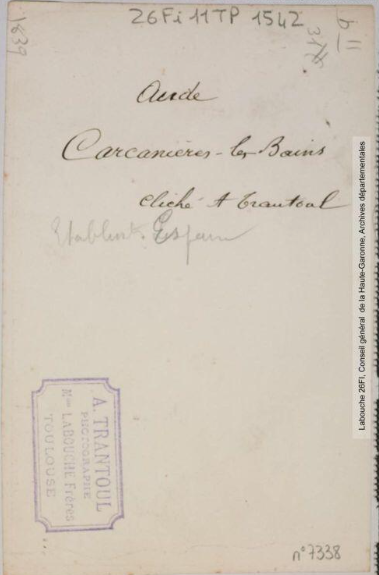 26Fi 11TP 1542
1839
b 11
Aude
Carcanières-les Bains
cliché A Trantoul
Etablisst. Esparre
A. TRANTOUL
PHOTOGRAPHE
Mon LABOUCHE Frères
TOULOUSE
n° 7338
Labouche 26FI, Conseil général de la Haute-Garonne, Archives départementales